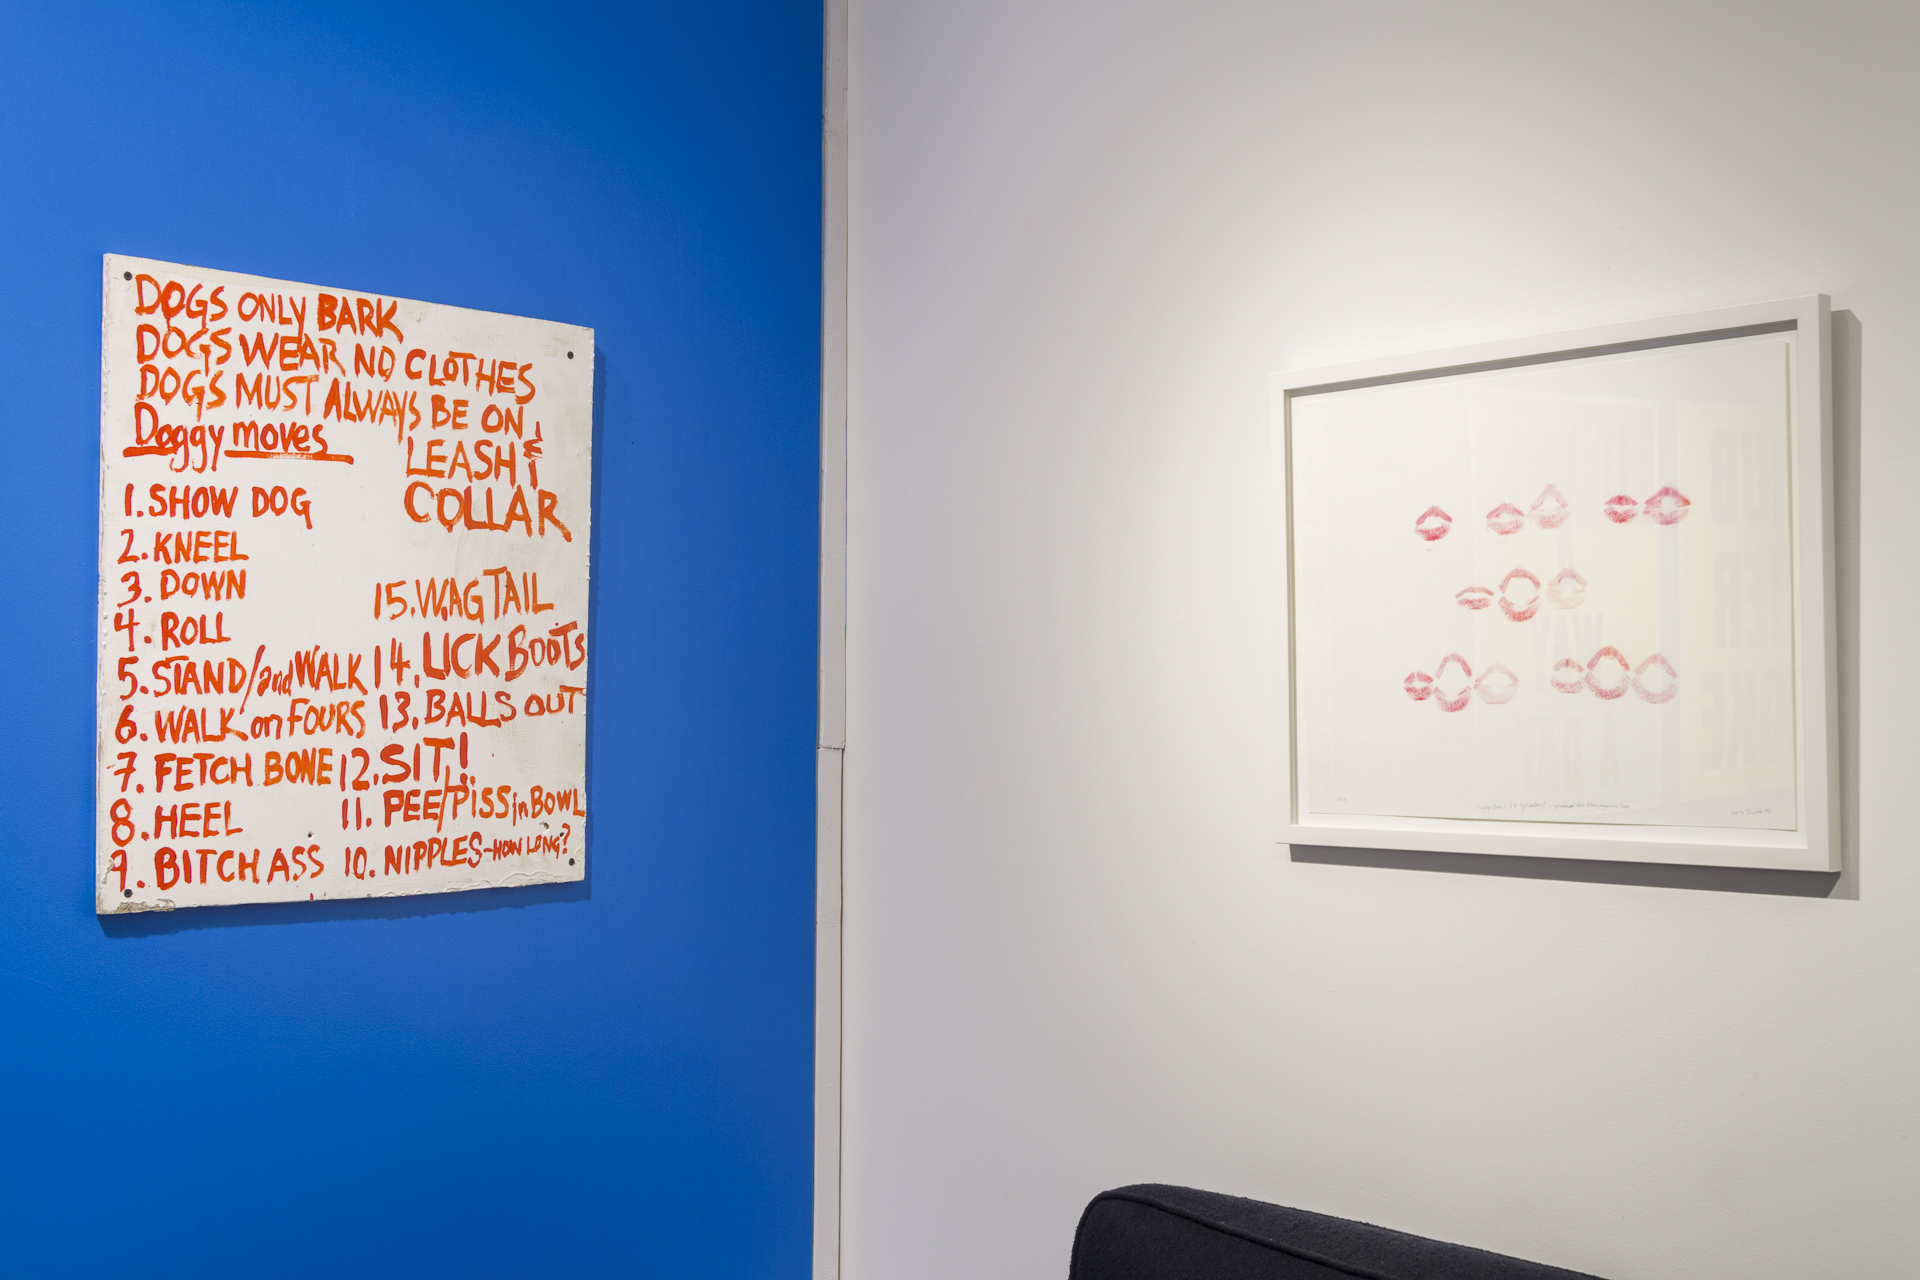 DOGS ONLY BARK
DOGS WEAR NO CLOTHES
DOGS MUST ALWAYS BE ON
LEASH &
COLLAR
Doggy moves
1. SHOW DOG
2. KNEEL
3. DOWN
4. ROLL
5. STAND/and WALK
6. WALK on FOURS
7. FETCH BONE
8. HEEL
9. BITCH ASS
10. NIPPLES-HOW LONG?
11. PEE/PISS in BOWL
12. SIT!
13. BALLS OUT
14. LICK BOOTS
15. WAG TAIL